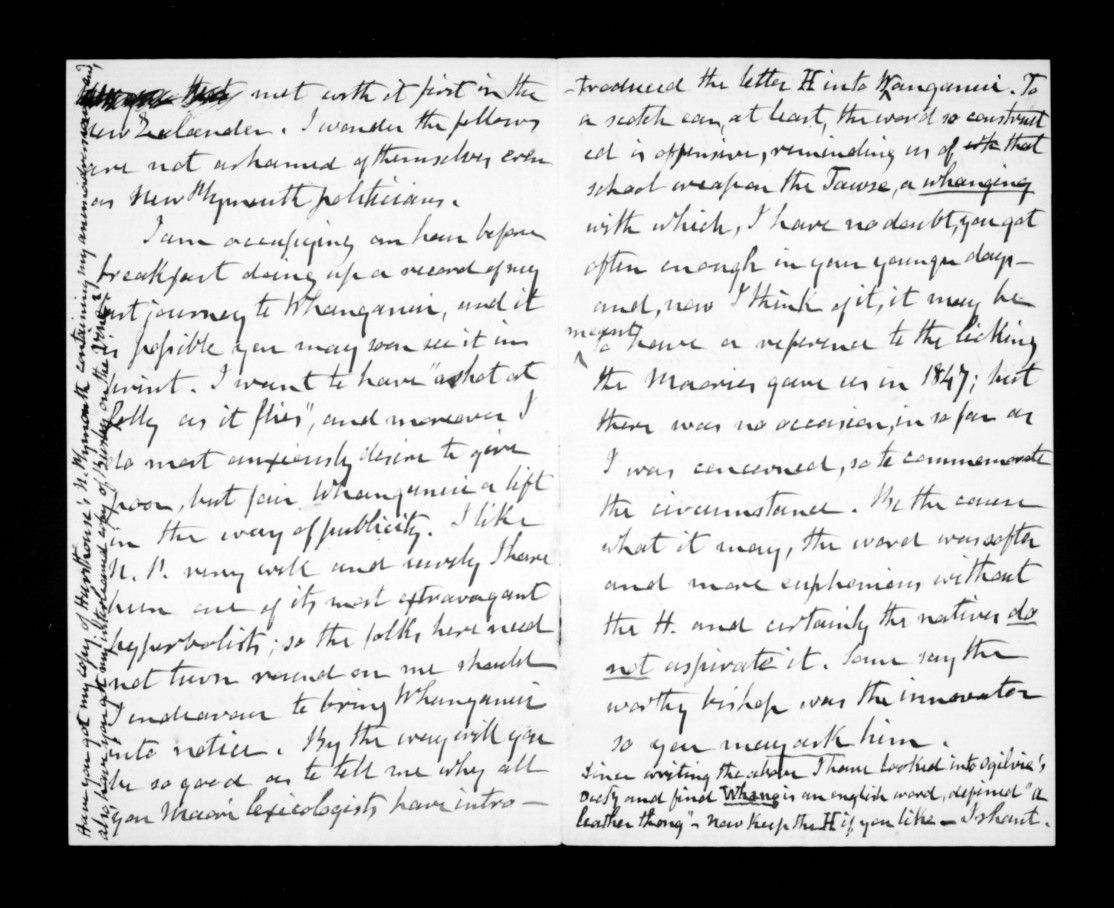 met with it first in the
New Zealander. I wonder the fellows
are not ashamed of themselves even
as New Plymouth politicians.
I am occupying an hour before
breakfast doing up a record of my
last journey to Whanganui, and it
is possible you may soon see it in
print. I want to have "a shot at
folly as it flies", and moreover I
do most anxiously desire to give
poor, but fair Whanganui a lift
in the way of publicity. I like
N. P. very well and surely I have
been one of its most extravagant
hyperbolists; so the folks here need
not turn round on me should
I endeavour to bring Whanganui
into notice. By the way will you
be so good as to tell me why all
you Maori lexicologists have intro-
Have you got my copy of Hursthouse's N. Plymouth containing my animadversions,
also have you got my interleaved copy of Busby on the Vine?
-troduced the letter H into Wanganui. To
a scotch ear, at least, the word so construct
ed is offensive, reminding us of that
school weapon the Tawse, a whanging
with which, I have no doubt, you got
often enough in your younger days -
and, now I think of it, it may be
meant to have a reference to the licking
the Maories gave us in 1847; but
there was no occasion, in so far as
I was concerned, so to commemorate
the circumstance. Be the cause
what it may, the word was softer
and more euphonious without
the H. and certainly the natives do
not aspirate it. Some say the
worthy bishop was the innovator
so you may ask him.
Since writing the above I have looked into Ogilvie's
Dicty and find Whang is an english word, defined "a
leather thong" - now keep the H if you like - I shant.